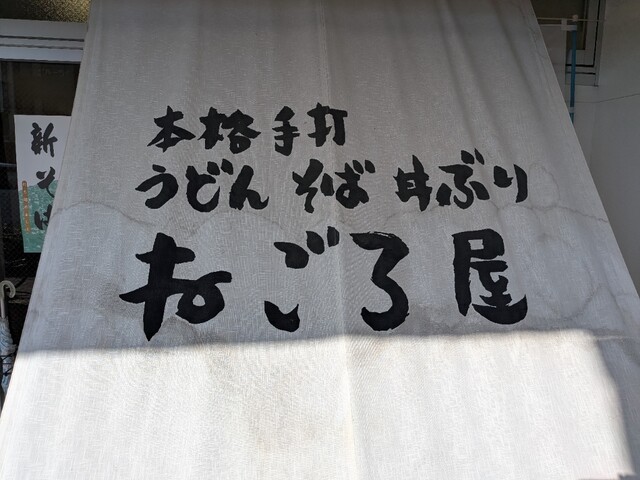 本格手打
うどん そば 丼ぶり
おごろ屋
新そば